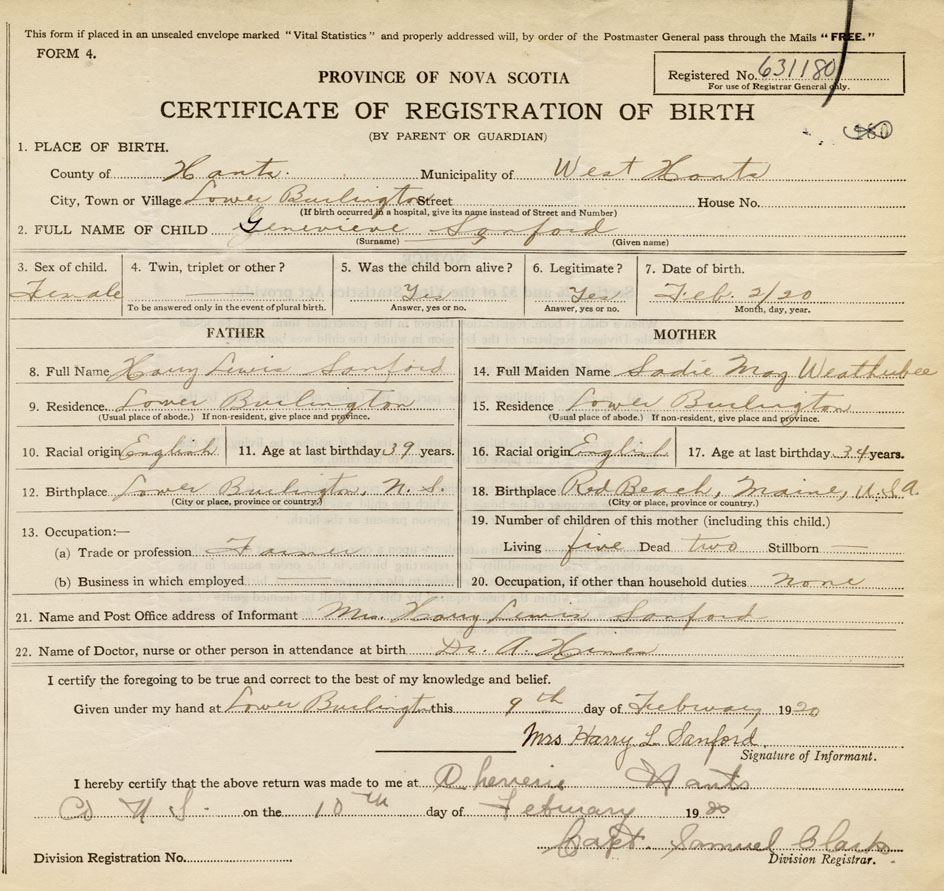 This form if placed in an unsealed envelope marked "Vital Statistics" and properly addressed will, by order of the Postmaster General pass through the Mails "FREE."
FORM 4.
PROVINCE OF NOVA SCOTIA
Registered No. 631180
For use of Registrar General only.
CERTIFICATE OF REGISTRATION OF BIRTH
(BY PARENT OR GUARDIAN)
1. PLACE OF BIRTH.
County of Hants. Municipality of West Hants
City, Town or Village Lower Burlington Street House No.
(If birth occurred in a hospital, give its name instead of Street and Number)
2. FULL NAME OF CHILD Genevieve Sanford
(Surname) (Given name)
3. Sex of child. 4. Twin, triplet or other? 5. Was the child born alive? 6. Legitimate? 7. Date of birth.
Female — Yes Yes Feb. 2/20
To be answered only in the event of plural birth. Answer, yes or no. Answer, yes or no. Month, day, year.
FATHER MOTHER
8. Full Name Harry Lewis Sanford 14. Full Maiden Name Sadie May Weatherbee
9. Residence. Lower Burlington 15. Residence Lower Burlington
(Usual place of abode.) If non-resident, give place and province. (Usual place of abode.) If non-resident, give place and province.
10. Racial origin English 11. Age at last birthday 39 years. 16. Racial origin English 17. Age at last birthday 34 years.
12. Birthplace Lower Burlington, N.S. 18. Birthplace Red Beach, Maine, U.S.A.
(City or place, province or country.) (City or place, province or country.)
13. Occupation:— 19. Number of children of this mother (including this child.)
(a) Trade or profession Farmer Living five Dead two Stillborn —
(b) Business in which employed — 20. Occupation, if other than household duties none
21. Name and Post Office address of Informant Mrs. Harry Lewis Sanford
22. Name of Doctor, nurse or other person in attendance at birth Dr. A.
I certify the foregoing to be true and correct to the best of my knowledge and belief.
Given under my hand at Lower Burlington this 9th day of February 1920
Mrs Harry L Sanford.
Signature of Informant.
I hereby certify that the above return was made to me at Cheverie Hants
Co N S. on the 10th day of February 1920
Capt. Samuel Clark
Division Registration No. Division Registrar.